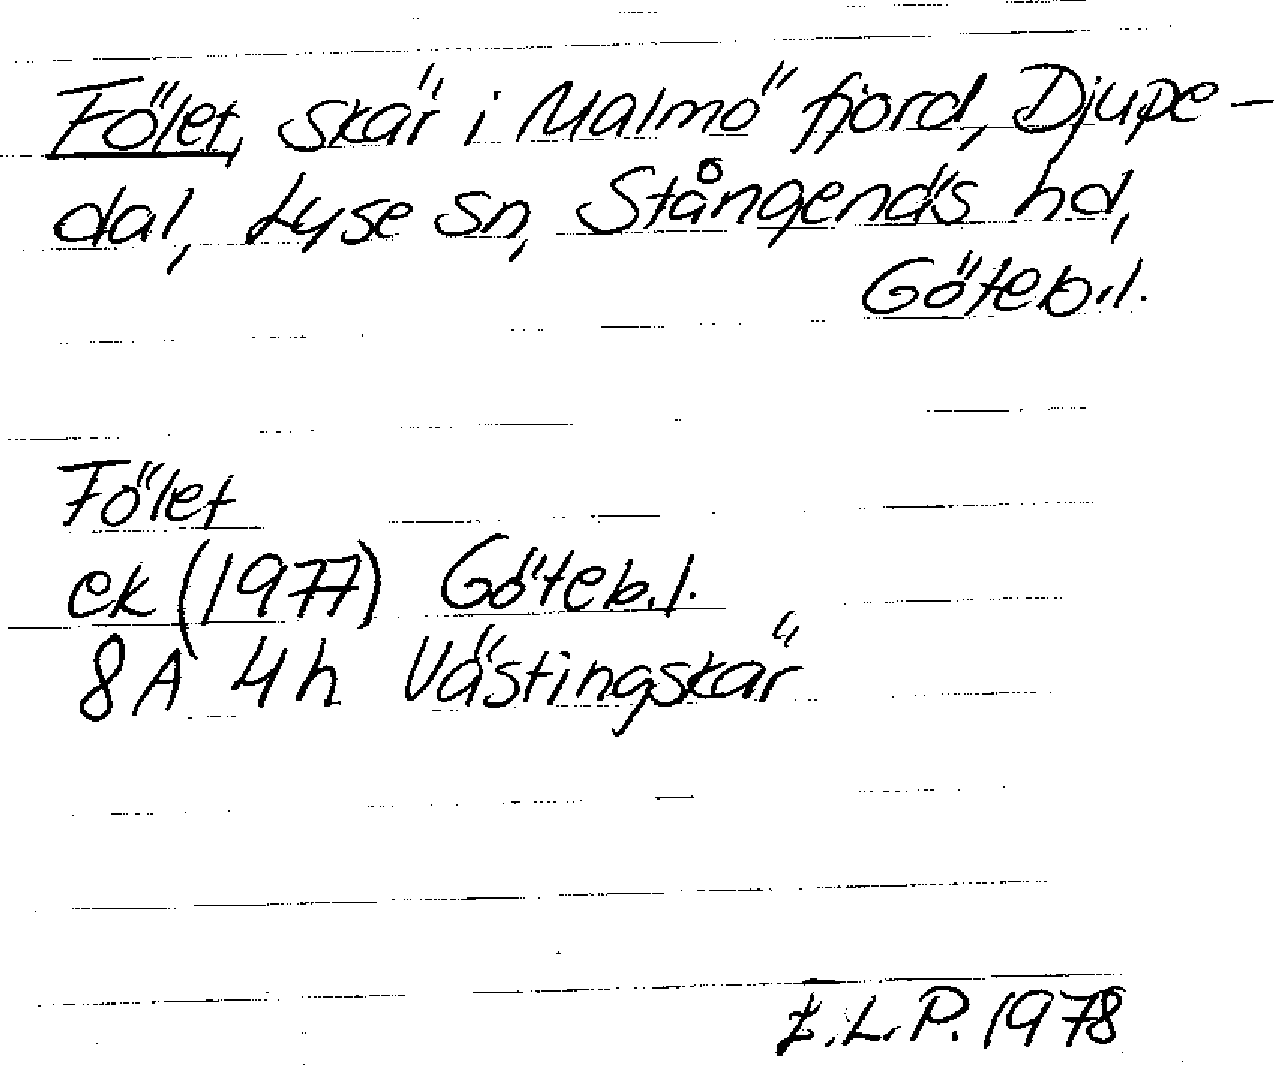 Fölet, skär i Malmö fjord, Djupe-
dal, Lyse sn, Stångenäs hd,
Göteb.l.
Fölet
ek (1977) Göteb.l.
8A 4h Västingskär
E.L.P. 1978